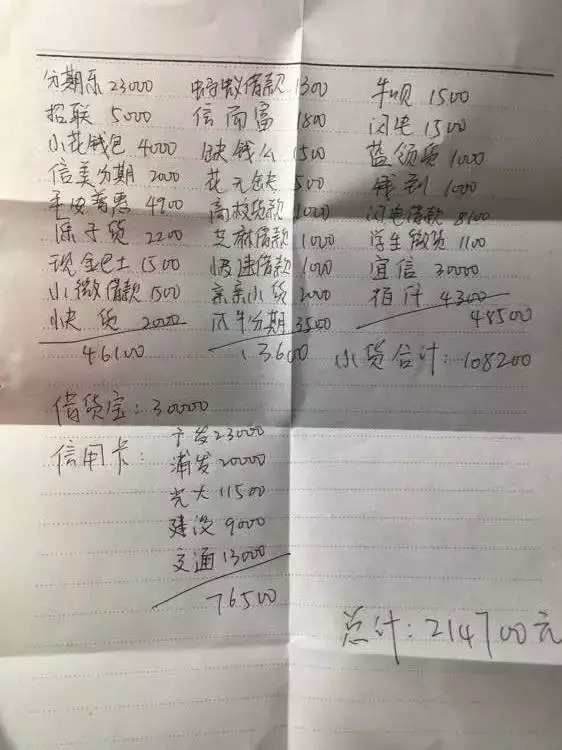 分期乐 23000
招联 5000
小花钱包 4000
信美分期 2000
平安普惠 4900
原子贷 2200
现金巴士 1500
小微借款 1500
快贷 2000
46100
蚂蚁借款 1300
信而富 1800
缺钱么 1500
花无缺 500
高校贷款 1000
芝麻借款 1000
快速借款 1000
亲亲小贷 2000
分期 3500
13600
牛呗 1500
闪电 1500
蓝领贷 1000
钱到 1000
闪电借款 8100
学生微贷 1100
宜信 30000
佰仟 4300
48500
小贷合计:108200
借贷宝:30000
信用卡:
广发 23000
浦发 20000
光大 11500
建设 9000
交通 13000
76500
总计:214700元